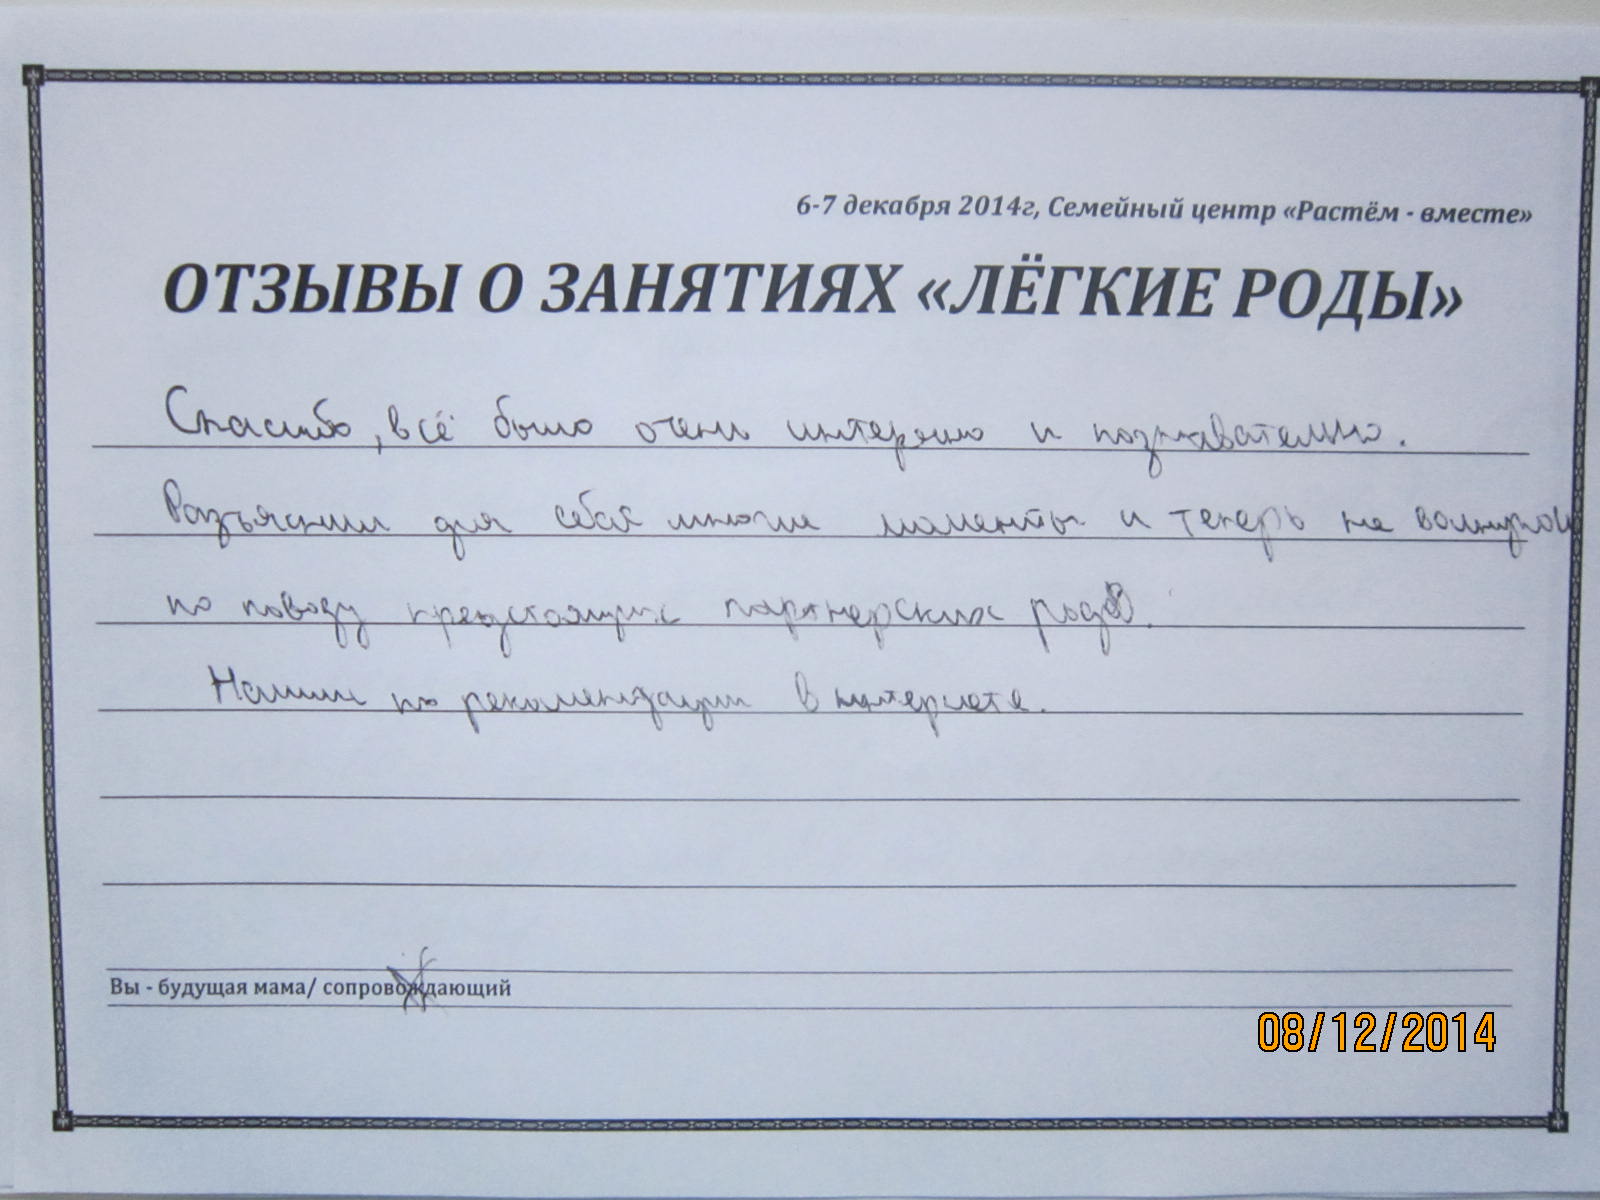 6-7 декабря 2014г, Семейный центр «Растём - вместе»
ОТЗЫВЫ О ЗАНЯТИЯХ «ЛЁГКИЕ РОДЫ»
Спасибо, всё было очень интересно и познавательно.
Разъяснили для себя многие моменты и теперь не волнуюсь
по поводу предстоящих партнерских родов.
Нашли по рекомендации в интернете.
Вы - будущая мама/ сопровождающий
08/12/2014